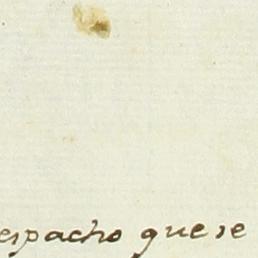 espacho que se